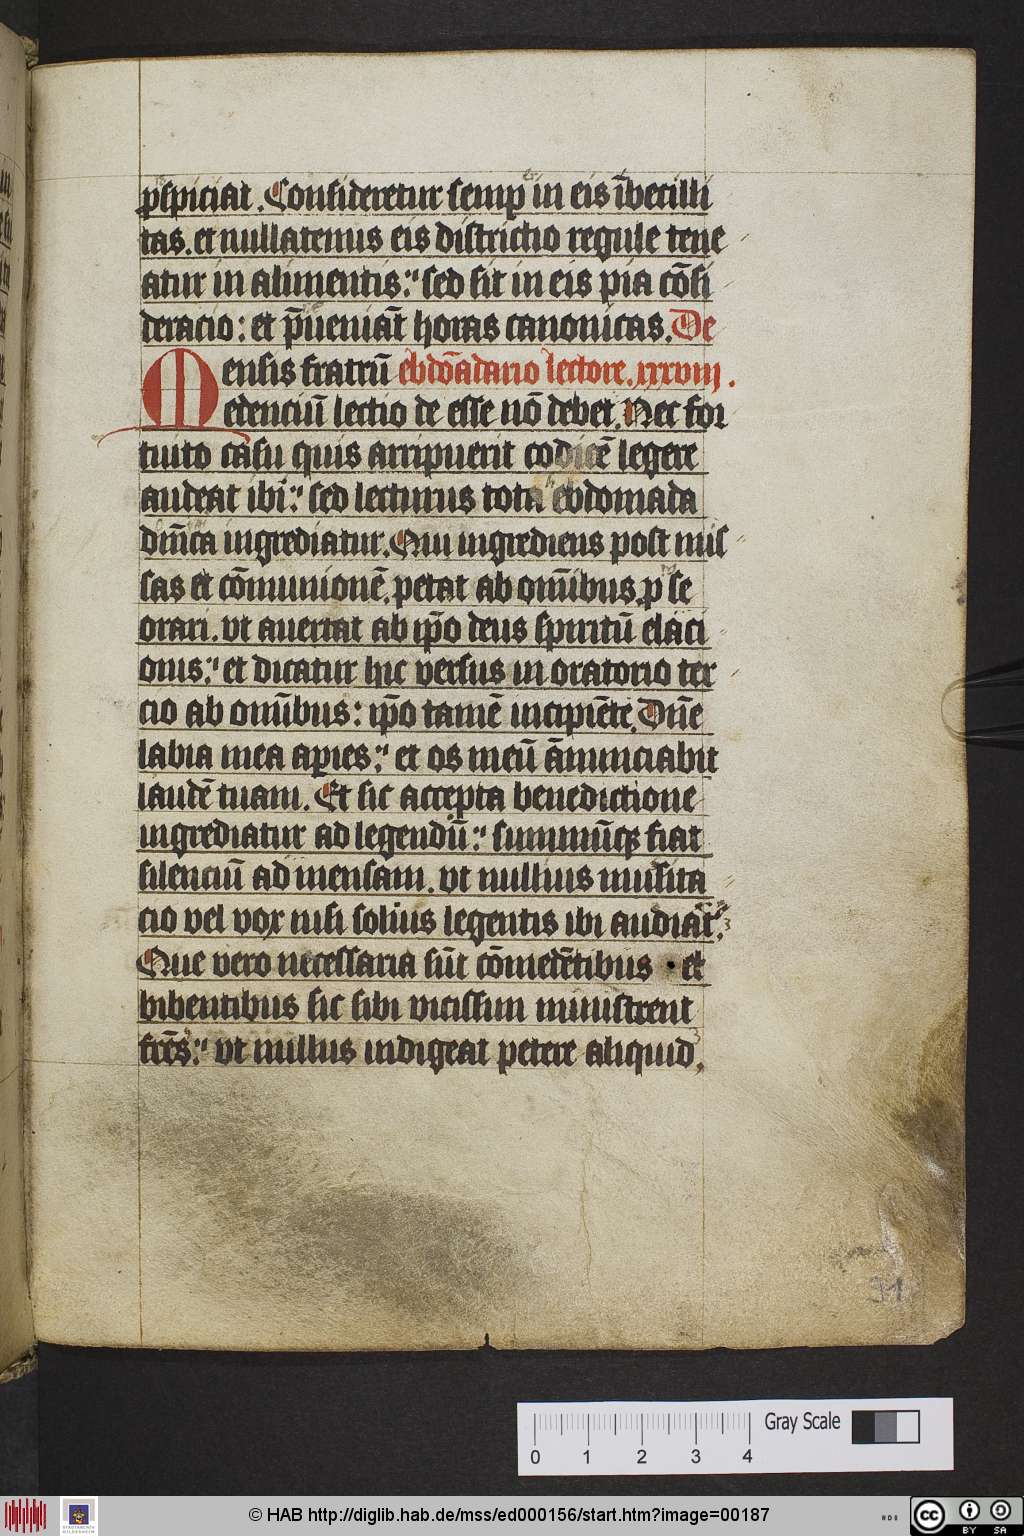 ꝑspiciat. Consideretur semꝑ in eis ībecilli
tas. et nullatenus eis districtio regule tene
atur in alimentis: sed sit in eis pia cōsi
deracio: et p̄ueniāt horas canonicas. De
ensis fratrū ebdōadario lectore. xxxviij.
M edenciū lectio de esse nō debet. Nec for
tuito casu quis arripuerit codicē legere
audeat ibi: sed lecturus tota ebdomada
dn̄ica ingrediatur. Qui ingrediens post mis
sas et cōmunionē. petat ab om̄ibus ꝓ se
orari. vt auertat ab ip̄o deus spiritū elaci
onis: et dicatur hic versus in oratorio ter
cio ab om̄ibus: ip̄o tamē incipiēte. Dn̄e
labia mea aꝑies: et os meū ānunciabit
laudē tuam. Et sic accepta benedictione
ingrediatur ad legendū: summūqꝫ fiat
silenciū ad mensam. vt nullius musita
cio vel vox nisi solius legentis ibi audiat̄.
Que vero necessaria sūt cōmedētibus . et
bibentibus sic sibi vicissim ministrent
fr̄es: vt nullus indigeat petere aliquid.
91
Gray Scale
0 1 2 3 4
© HAB http://diglib.hab.de/mss/ed000156/start.htm?image=00187
cc BY SA